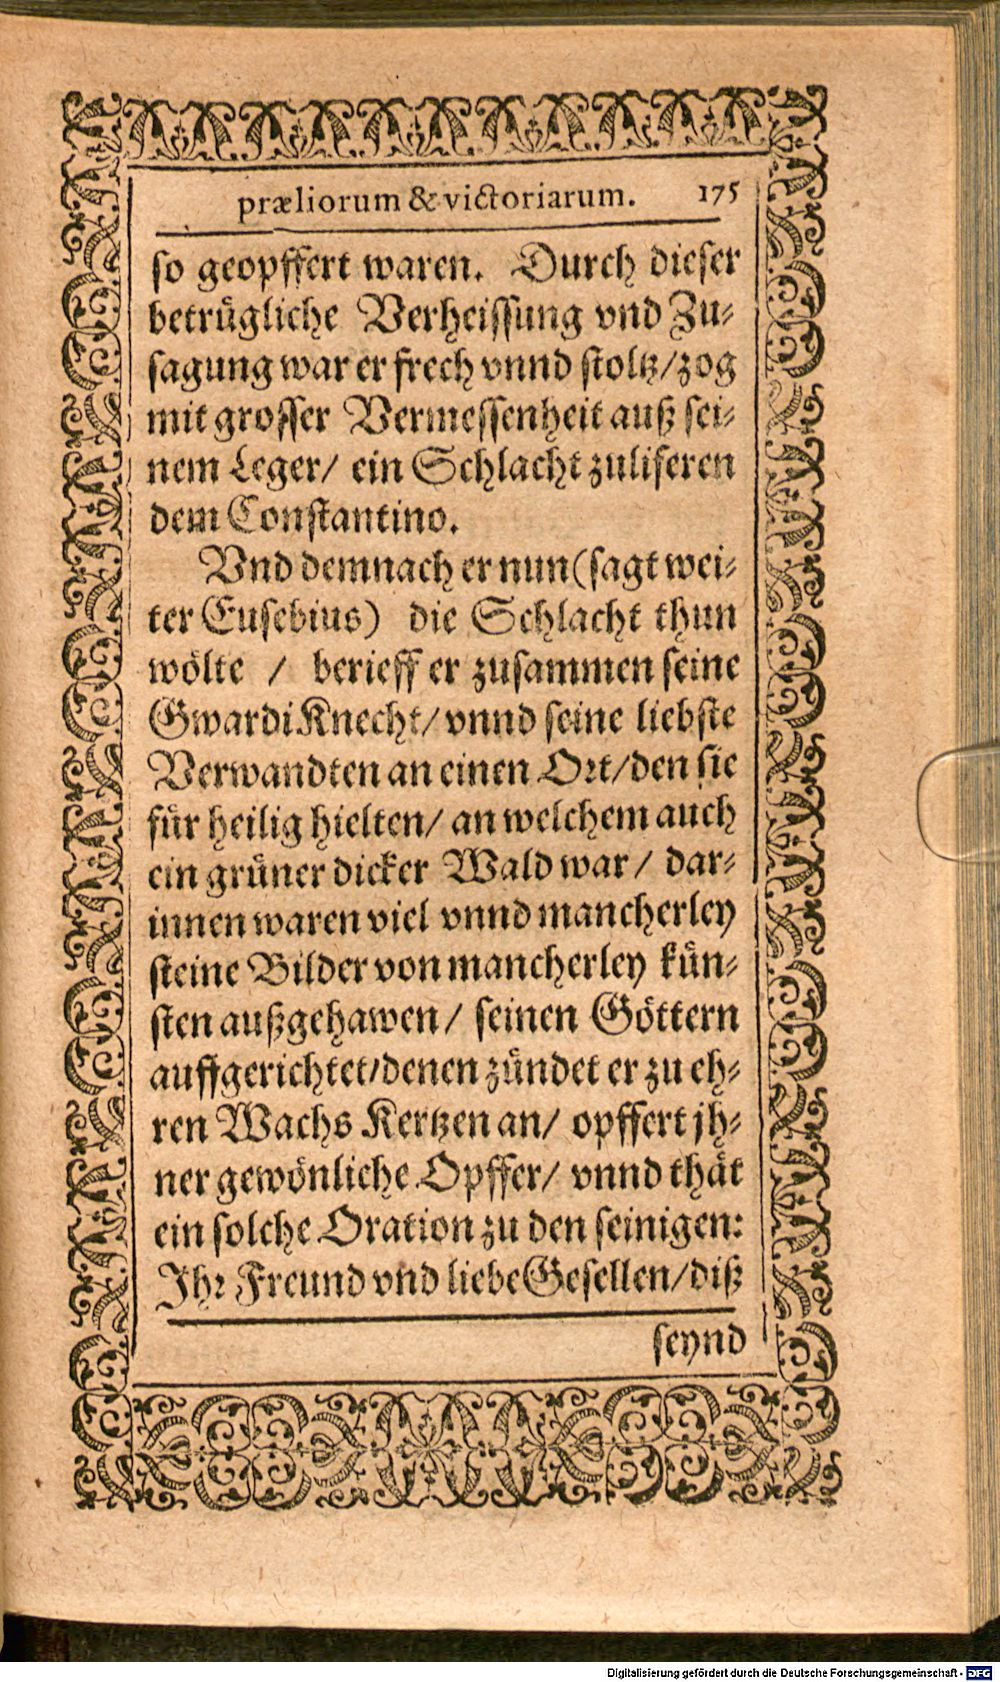 præliorum & victoriarum. 175
so geopffert waren. Durch dieser
betrügliche Verheissung vnd Zu-
sagung war er frech vnnd stoltz/zog
mit grosser Vermessenheit auß sei-
nem Leger/ ein Schlacht zuliferen
dem Constantino.
Vnd demnach er nun (sagt wei-
ter Eusebius) die Schlacht thun
wölte / berieff er zusammen seine
Gwardi Knecht/ vnnd seine liebste
Verwandten an einen Ort/den sie
für heilig hielten/ an welchem auch
ein grüner dicker Wald war/ dar-
innen waren viel vnnd mancherley
steine Bilder von mancherley kün-
sten außgehawen/ seinen Göttern
auffgerichtet/denen zündet er zu eh-
ren Wachs Kertzen an/ opffert jh-
ner gewönliche Opffer/ vnnd thät
ein solche Oration zu den seinigen:
Ihr Freund vnd liebe Gesellen/diß
seynd
Digitalisierung gefördert durch die Deutsche Forschungsgemeinschaft - DFG